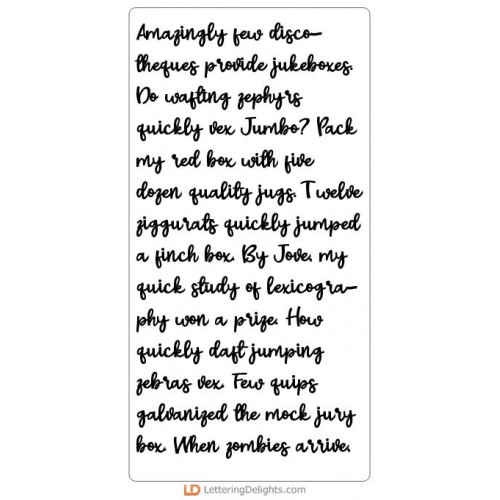 Amazingly few disco-
theques provide jukeboxes.
Do wafting zephyrs
quickly vex Jumbo? Pack
my red box with five
dozen quality jugs. Twelve
ziggurats quickly jumped
a finch box. By Jove, my
quick study of lexicogra-
phy won a prize. How
quickly daft jumping
zebras vex. Few quips
galvanized the mock jury
box. When zombies arrive,
LD LetteringDelights.com